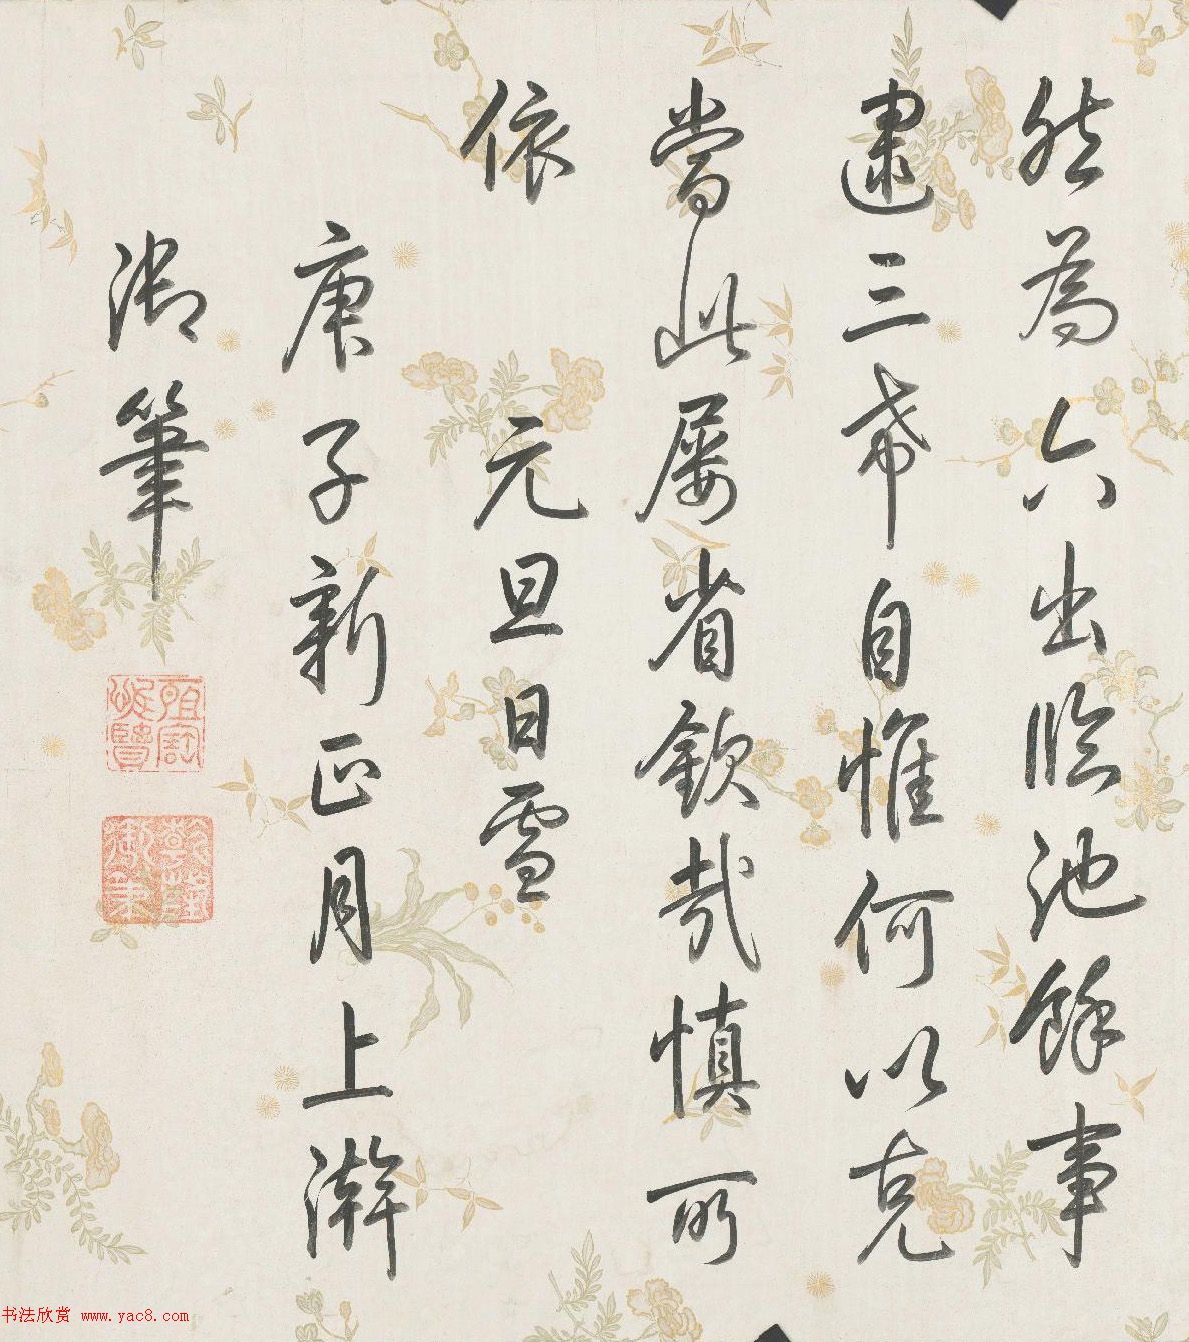 然為六出臨池餘事
逮三希自惟何以克
當此屡省欽哉慎所
依
元旦日雪
庚子新正月上澣
御筆
乾隆御筆
书法欣赏 www.yac8.com